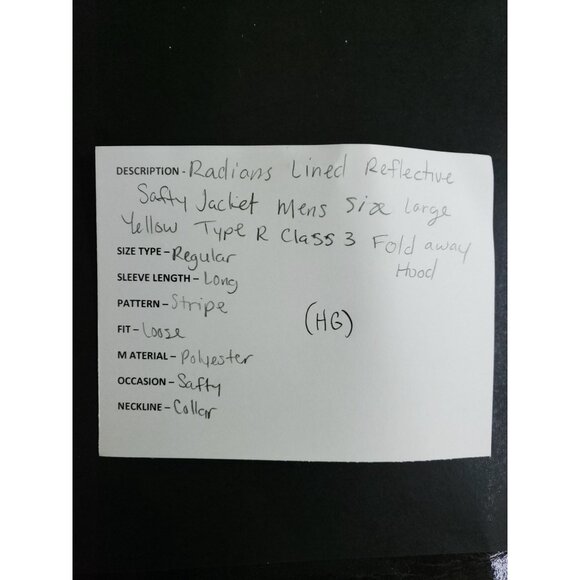 DESCRIPTION - Radians Lined Reflective
Safty Jacket Mens Size Large
Yellow Type R Class 3 Fold away
Hood
SIZE TYPE – Regular
SLEEVE LENGTH – Long
PATTERN – Stripe
(HG)
FIT – Loose
MATERIAL – Polyester
OCCASION – Safty
NECKLINE – Collar